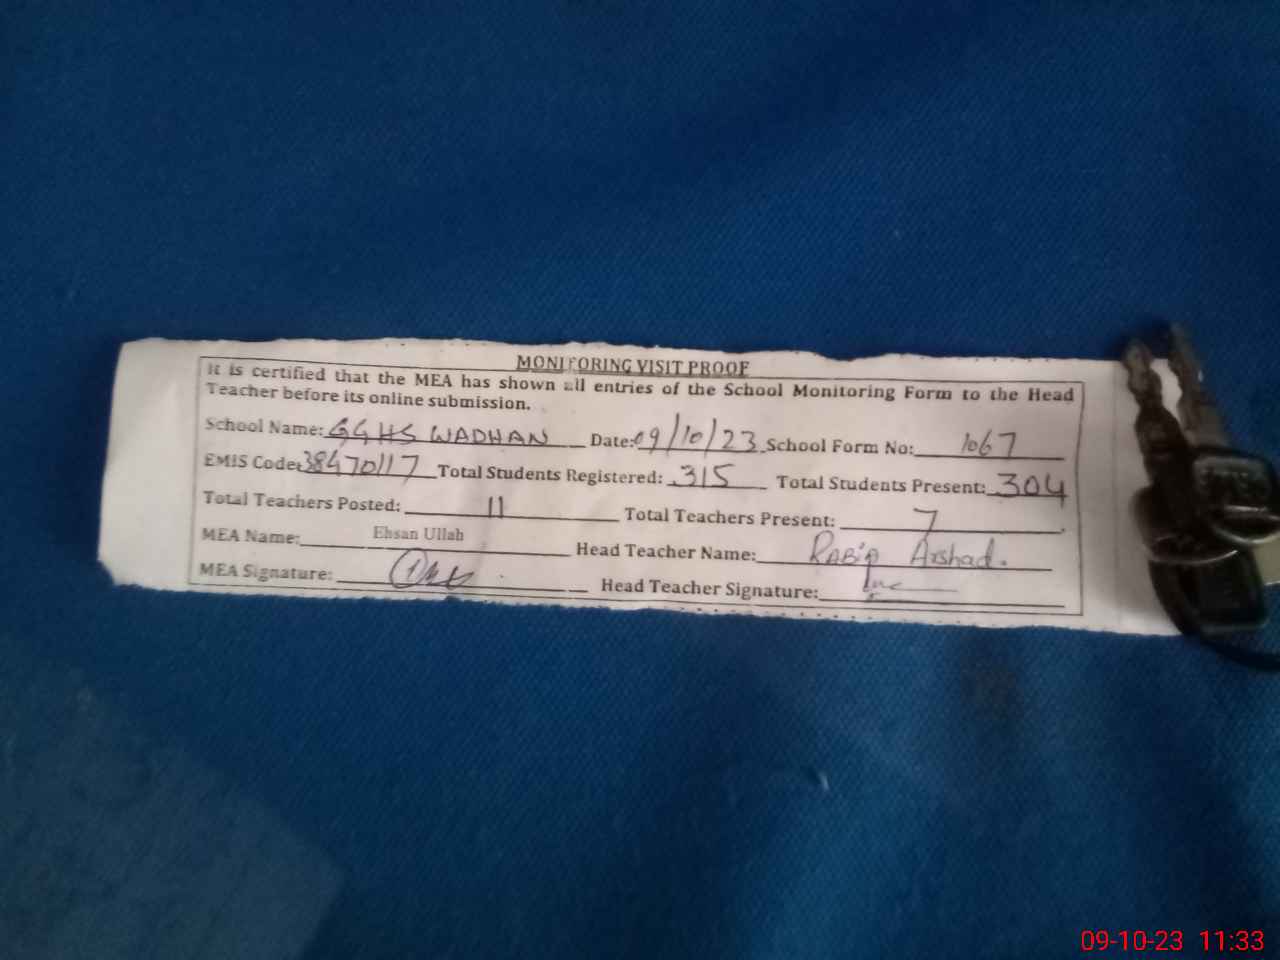 MONITORING VISIT PROOF
It is certified that the MEA has shown all entries of the School Monitoring Form to the Head
Teacher before its online submission.
School Name: GGHS WADHAN Date: 09/10/23 School Form No: 1067
EMIS Code: 38470117 Total Students Registered: 315 Total Students Present: 304
Total Teachers Posted: 11 Total Teachers Present: 7
MEA Name: Ehsan Ullah Head Teacher Name: RABia Arshad.
MEA Signature: Head Teacher Signature:
09-10-23 11:33